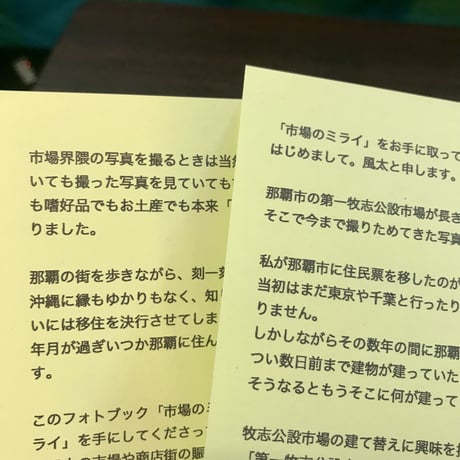 市場界隈の写真を撮るときは当然
いても撮った写真を見ていても
も嗜好品でもお土産でも本来「
りました。
那覇の街を歩きながら、刻一刻
沖縄に縁もゆかりもなく、知り
いには移住を決行させてしま
年月が過ぎいつか那覇に住ん
す。
このフォトブック「市場のミ
ライ」を手にしてくださっ
の市場や商店街の賑
「市場のミライ」をお手に取って
はじめまして。風太と申します。
那覇市の第一牧志公設市場が長き
そこで今まで撮りためてきた写真
私が那覇市に住民票を移したのが
当初はまだ東京や千葉と行ったり
りません。
しかしながらその数年の間に那覇
つい数日前まで建物が建っていた
そうなるともうそこに何が建って
牧志公設市場の建て替えに興味を持
「第一牧志公設